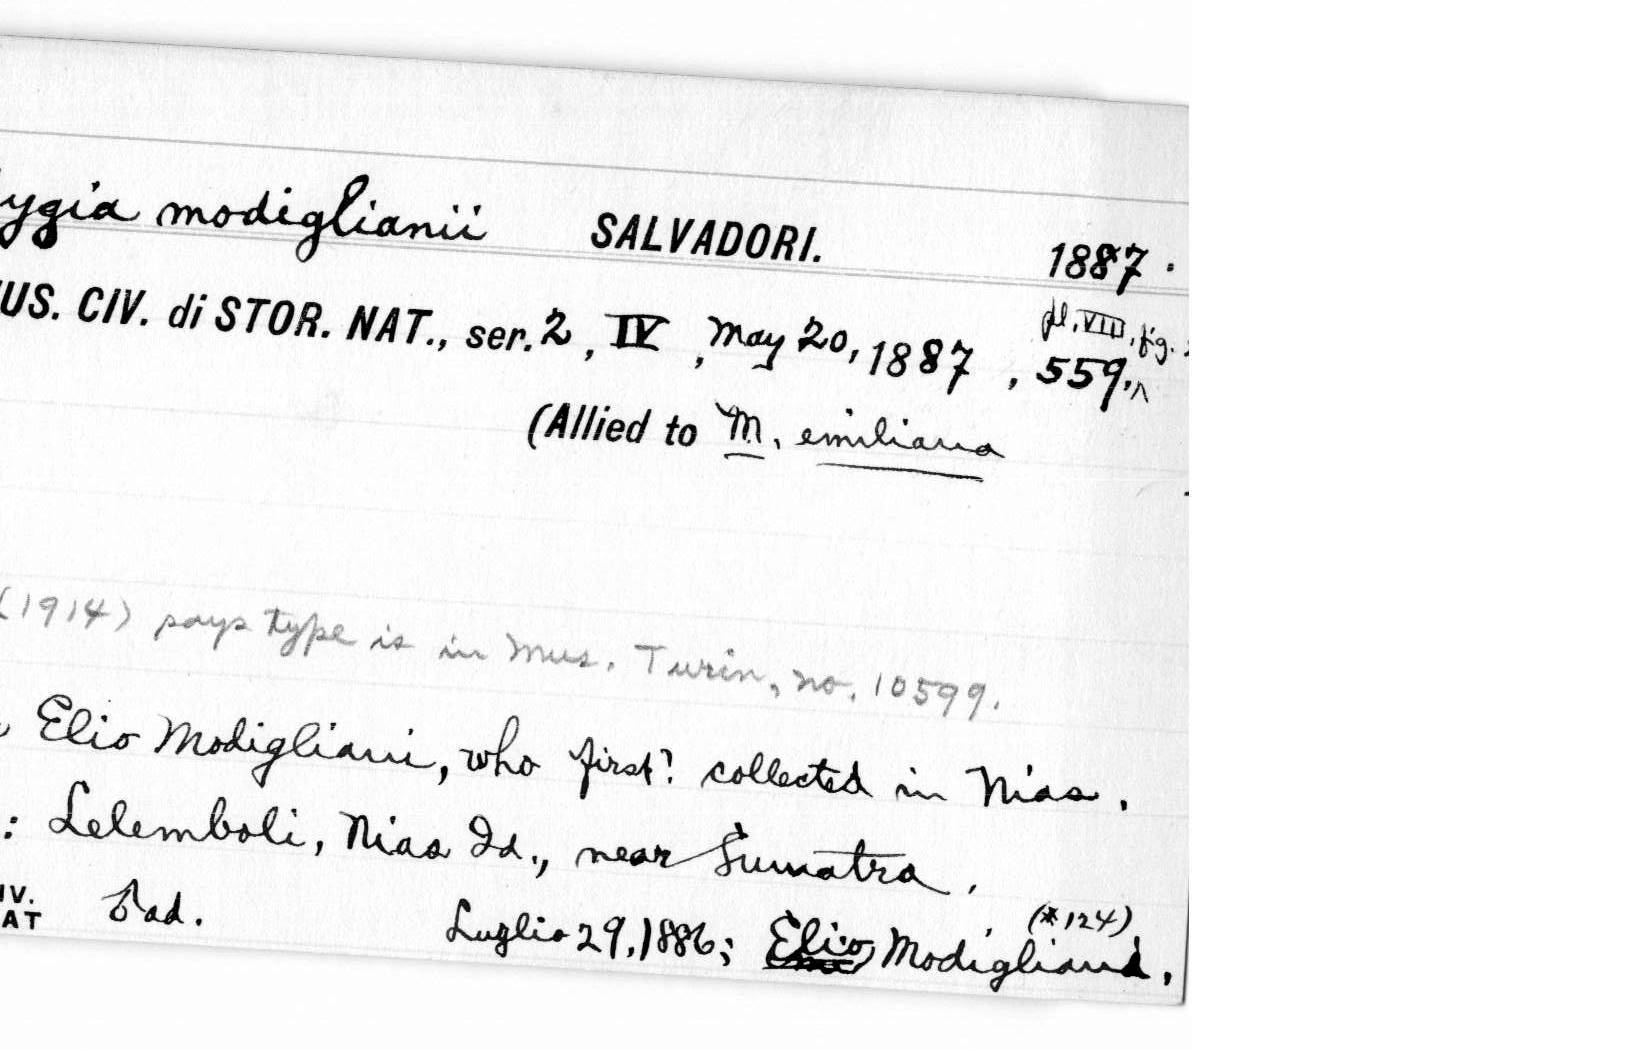 ygia modiglianii SALVADORI. 1887.
US. CIV. di STOR. NAT., ser. 2, IV, May 20, 1887, 559. pl. VIII, fig.
(Allied to M. emiliana
(1914) says type is in Mus. Turin, no. 10599.
Elio Modigliani, who first? collected in Nias.
: Lelemboli, Nias Id., near Sumatra.
IV.
AT ad. Luglio 29, 1886; Elio Modigliani, (*124)